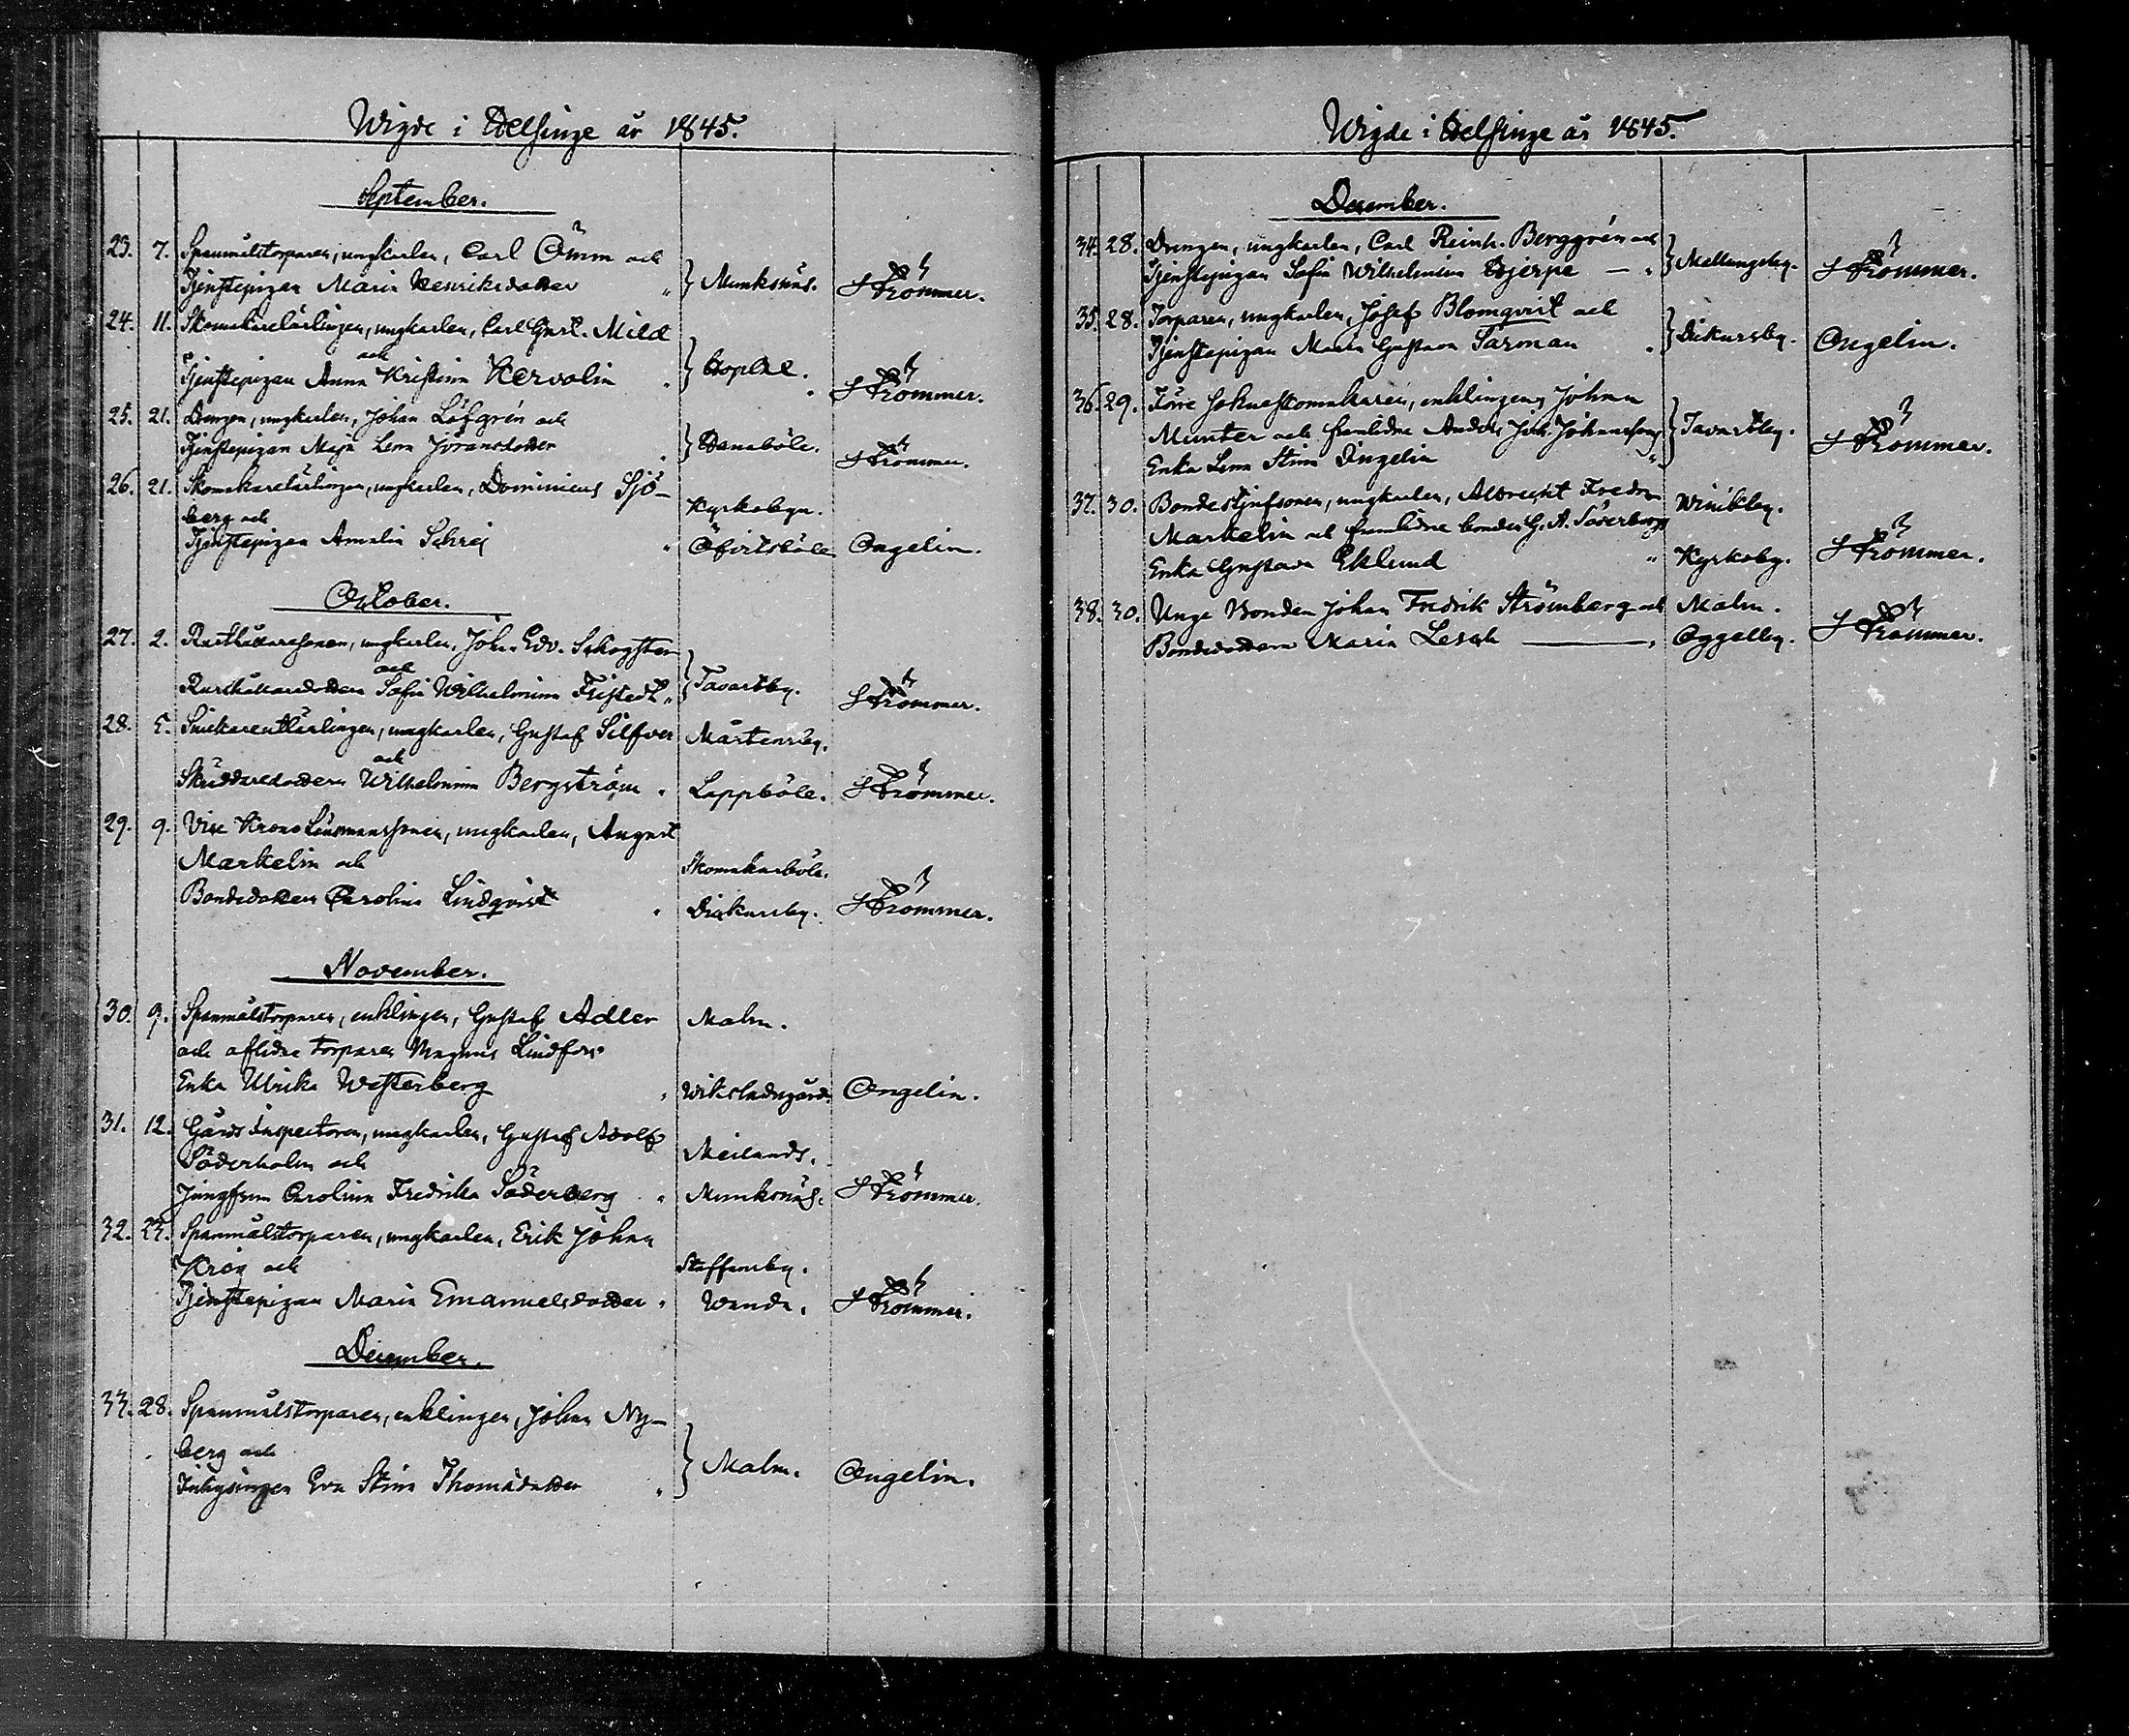 Wigde i Helsinge år 1845.
September.
23. 7. Spanmålstorparen, ungkarlen, Carl Öman och
Tjenstepigan Maria Henriksdotter " } Munksnäs. Strömmer.
24. 11. Skomakarelärlingen, ungkarlen, Carl Gust. Mild
och
Tjenstepigan Anna Kristina Hervolin " } Hoplax. Strömmer.
25. 21. Drengen, ungkarlen, Johan Löfgrén och
Tjenstepigan Maja Lena Jöransdotter " } Danaböle. Strömmer.
26. 21. Skomakarelärlingen, ungkarlen, Dominicus Sjö-
berg och Kyrkobyn.
Tjenstepigan Amalia Schrej " Öfvitsböle Ongelin.
October.
27. 2. Rusthållaresonen, ungkarlen, Joh. Edv. Skogster
och
Rusthållaredottern Sofia Wilhelmina Fristedt " } Tavastby. Strömmer.
28. 5. Snickarelärlingen, ungkarlen, Gustaf Silfver Mårtensby.
och
Skräddaredottern Wilhelmina Bergström " Lappböle. Strömmer.
29. 9. Vice Krono Länsmanssonen, ungkarlen, August
Markelin och Skomakarböle.
Bondedottern Carolina Lindqvist " Dickursby. Strömmer.
November.
30. 9. Spanmålstorparen, enklingen, Gustaf Adler Malm.
och aflidne torparen Magnus Lindfors
Enka Ulrika Westerberg " Wiksladugård. Ongelin.
31. 12. Gårds Inspectoren, ungkarlen, Gustaf Adolf
Söderholm och Meilands.
Jungfrun Carolina Fredrika Söderberg " Munksnäs. Strömmer.
32. 23. Spanmålstorparen, ungkarlen, Erik Johan
Krog och Staffansby.
Tjenstepigan Maria Emanuelsdotter " Wanda. Strömmer.
December.
33. 28. Spanmålstorparen, enklingen, Johan Ny-
berg och
Inhysingen Eva Stina Thomasdotter " } Malm. Ongelin.
Wigde i Helsinge år 1845.
December.
34. 28. Drengen, ungkarlen, Carl Reinh. Berggrén och
Tjenstepigan Sofia Wilhelmina Hjerpe — " } Mellungsby. Strömmer.
35. 28. Torparen, ungkarlen, Josef Blomqvist och
Tjenstepigan Maria Gustava Sarman " } Dickursby. Ongelin.
36. 29. Förre Sockneskomakaren, enklingen, Johan
Munter och framlidne Anders Joh. Johanssons } Tavastby. Strömmer.
Enka Lena Stina Ongelin "
37. 30. Bondestjufsonen, ungkarlen, Albrecht Fredr. Winikby.
Markelin och framlidne bonden G. A. Söderbergs
Enka Gustava Eklund " Kyrkoby. Strömmer.
38. 30. Unge Bonden Johan Fredrik Strömberg och Malm.
Bondedottern Maria Lesch — " Oggelby. Strömmer.